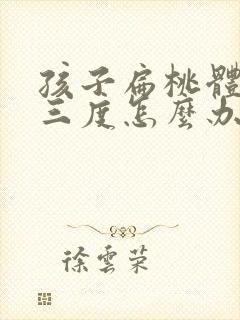 孩子扁桃體
三度怎麼办
徐雲荣